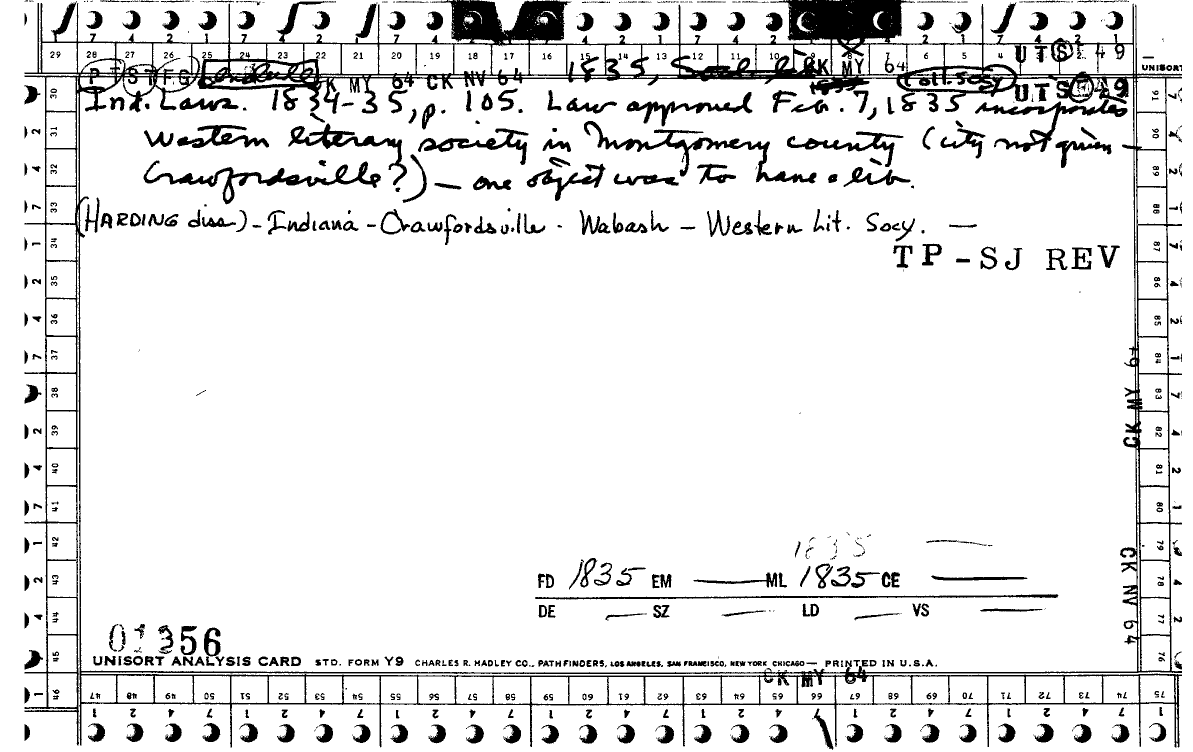 7 4 2 1 7 4 2 1 7 4 2 1 7 4 2 1 7 4 2 1 7 4 2 1 7 4 2 1
29 28 27 26 25 24 23 22 21 20 19 18 17 16 15 14 13 12 11 10 9 8 7 6 5 4 3 2 1 UTS 49
PT ST FG CK MY 64 CK NV 64 1835, CK MY 64 Coll. Socy UTS 49 UNISORT
Ind. Laws. 1834-35, p. 105. Law approved Feb. 7, 1835 incorporates
Western literary society in Montgomery county (city not given –
Crawfordsville?) – one object was to have a lib.
(HARDING diss.) - Indiana - Crawfordsville - Wabash – Western Lit. Socy. —
TP-SJ REV
30 31 32 33 34 35 36 37 38 39 40 41 42 43 44 45 46
91 90 89 88 87 86 85 84 83 82 81 80 79 78 77 76 75
CK MY 64
CK NV 64
1835
FD 1835 EM — ML 1835 CE —
DE — SZ — LD — VS —
01356
UNISORT ANALYSIS CARD STD. FORM Y9 CHARLES R. HADLEY CO., PATHFINDERS, LOS ANGELES, SAN FRANCISCO, NEW YORK CHICAGO — PRINTED IN U.S.A.
CK MY 64
47 48 49 50 51 52 53 54 55 56 57 58 59 60 61 62 63 64 65 66 67 68 69 70 71 72 73 74 75
1 2 4 7 1 2 4 7 1 2 4 7 1 2 4 7 1 2 4 7 1 2 4 7 1 2 4 7 1